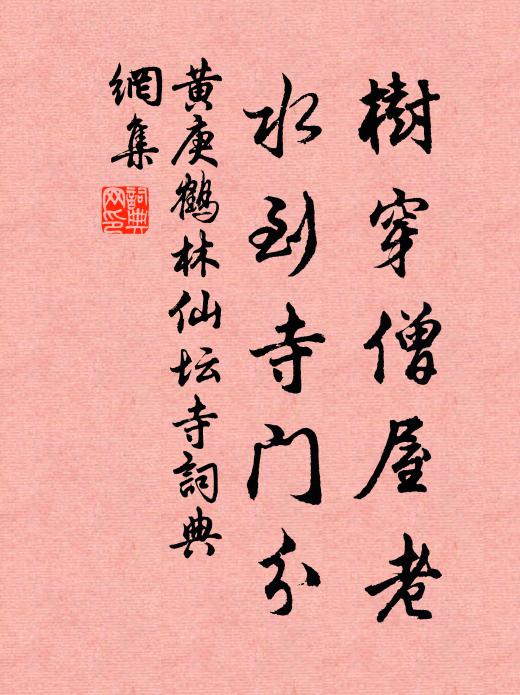 樹穿僧屋老
水到寺门分
黄庚鶴林仙坛寺詞典
網集
詞典网印